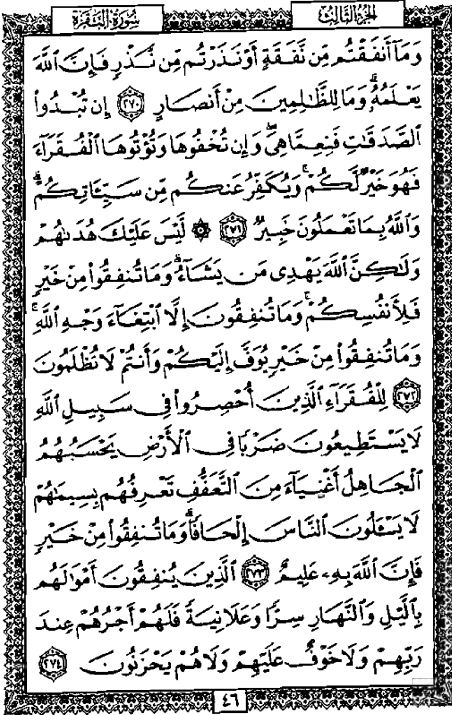 الجزء الثالث سورة البقرة
وَمَآ أَنفَقْتُم مِّن نَّفَقَةٍ أَوْ نَذَرْتُم مِّن نَّذْرٍ فَإِنَّ ٱللَّهَ
يَعْلَمُهُۥ ۗ وَمَا لِلظَّٰلِمِينَ مِنْ أَنصَارٍ ٢٧٠ إِن تُبْدُوا۟
ٱلصَّدَقَٰتِ فَنِعِمَّا هِىَ ۖ وَإِن تُخْفُوهَا وَتُؤْتُوهَا ٱلْفُقَرَآءَ
فَهُوَ خَيْرٌ لَّكُمْ ۚ وَيُكَفِّرُ عَنكُم مِّن سَيِّـَٔاتِكُمْ ۗ
وَٱللَّهُ بِمَا تَعْمَلُونَ خَبِيرٌ ٢٧١ ۞ لَّيْسَ عَلَيْكَ هُدَىٰهُمْ
وَلَٰكِنَّ ٱللَّهَ يَهْدِى مَن يَشَآءُ ۗ وَمَا تُنفِقُوا۟ مِنْ خَيْرٍ
فَلِأَنفُسِكُمْ ۚ وَمَا تُنفِقُونَ إِلَّا ٱبْتِغَآءَ وَجْهِ ٱللَّهِ ۚ
وَمَا تُنفِقُوا۟ مِنْ خَيْرٍ يُوَفَّ إِلَيْكُمْ وَأَنتُمْ لَا تُظْلَمُونَ
٢٧٢ لِلْفُقَرَآءِ ٱلَّذِينَ أُحْصِرُوا۟ فِى سَبِيلِ ٱللَّهِ
لَا يَسْتَطِيعُونَ ضَرْبًا فِى ٱلْأَرْضِ يَحْسَبُهُمُ
ٱلْجَاهِلُ أَغْنِيَآءَ مِنَ ٱلتَّعَفُّفِ تَعْرِفُهُم بِسِيمَٰهُمْ
لَا يَسْـَٔلُونَ ٱلنَّاسَ إِلْحَافًا ۗ وَمَا تُنفِقُوا۟ مِنْ خَيْرٍ
فَإِنَّ ٱللَّهَ بِهِۦ عَلِيمٌ ٢٧٣ ٱلَّذِينَ يُنفِقُونَ أَمْوَٰلَهُم
بِٱلَّيْلِ وَٱلنَّهَارِ سِرًّا وَعَلَانِيَةً فَلَهُمْ أَجْرُهُمْ عِندَ
رَبِّهِمْ وَلَا خَوْفٌ عَلَيْهِمْ وَلَا هُمْ يَحْزَنُونَ ٢٧٤
٤٦